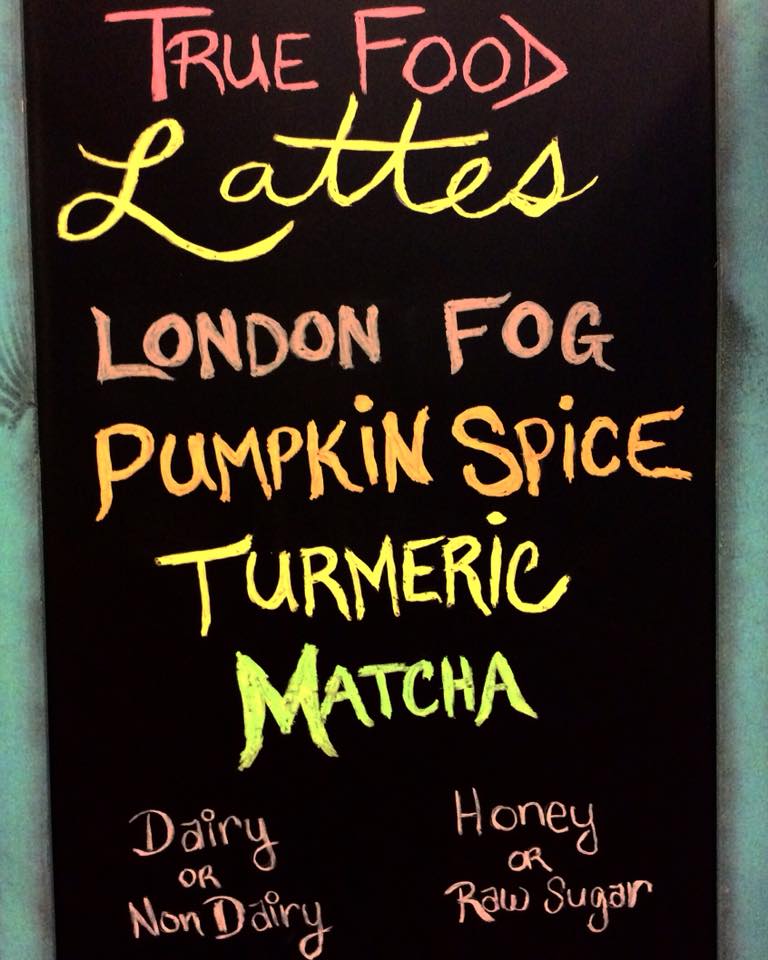 TRUE FOOD
Lattes
LONDON FOG
PUMPKiN SPiCE
TURMERiC
MATCHA
Dairy
OR
Non Dairy
Honey
OR
Raw Sugar